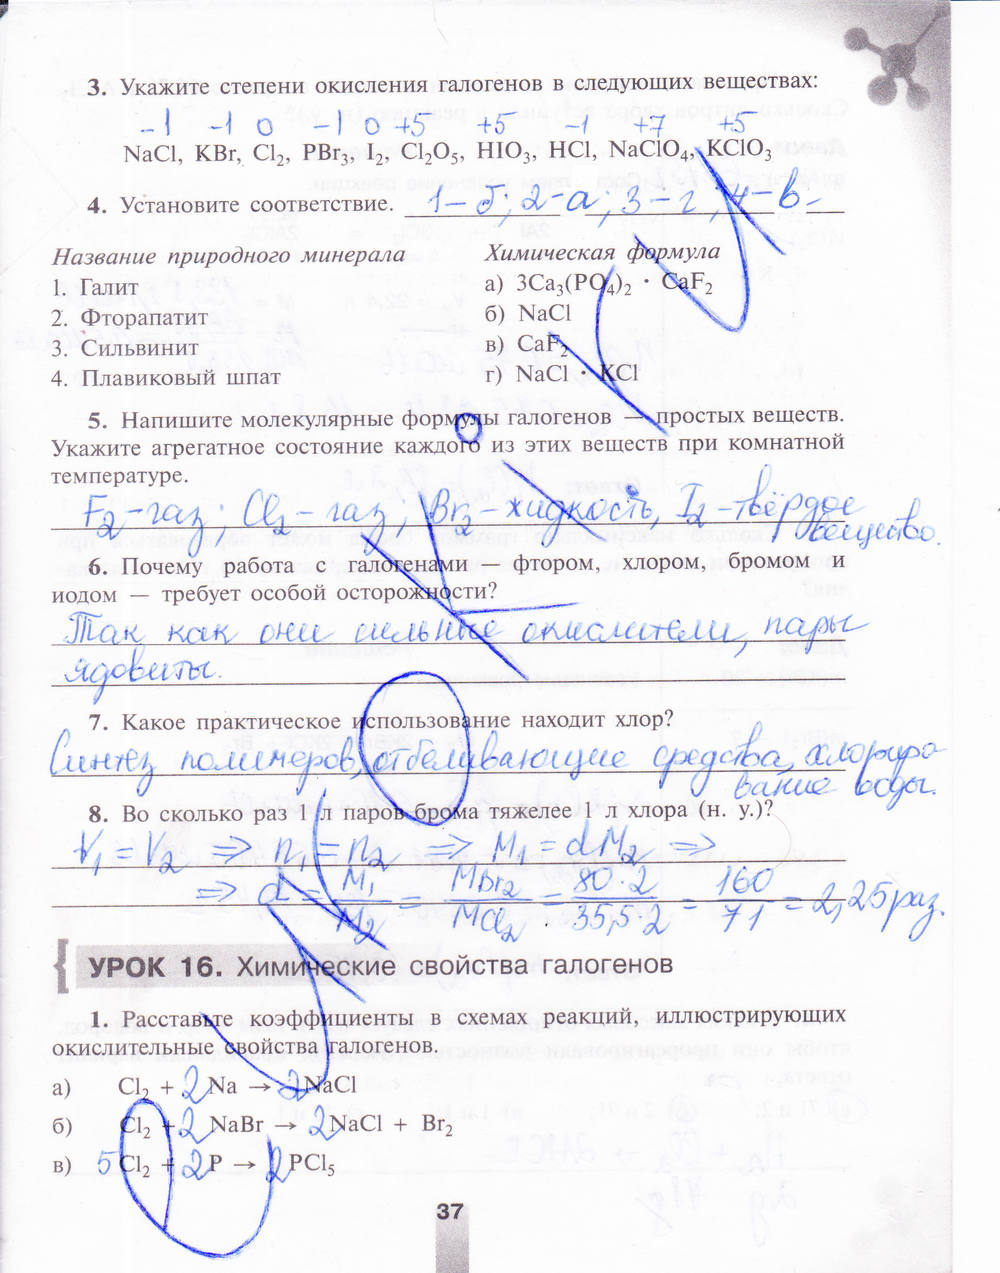 3. Укажите степени окисления галогенов в следующих веществах:
-1 -1 0 -1 0 +5 +5 -1 +7 +5
NaCl, KBr, Cl₂, PBr₃, I₂, Cl₂O₅, HIO₃, HCl, NaClO₄, KClO₃
4. Установите соответствие. 1-б; 2-а; 3-г; 4-в.
Название природного минерала
1. Галит
2. Фторапатит
3. Сильвинит
4. Плавиковый шпат
Химическая формула
а) 3Ca₃(PO₄)₂ · CaF₂
б) NaCl
в) CaF₂
г) NaCl · KCl
5. Напишите молекулярные формулы галогенов — простых веществ.
Укажите агрегатное состояние каждого из этих веществ при комнатной
температуре.
F₂-газ; Cl₂-газ; Br₂-жидкость, I₂-твёрдое
вещество.
6. Почему работа с галогенами — фтором, хлором, бромом и
иодом — требует особой осторожности?
Так как они сильные окислители, пары
ядовиты.
7. Какое практическое использование находит хлор?
Синтез полимеров, отбеливающие средства, хлориро-
вание воды.
8. Во сколько раз 1 л паров брома тяжелее 1 л хлора (н. у.)?
V₁ = V₂ ⇒ n₁ = n₂ ⇒ M₁ = dM₂ ⇒
⇒ d = M₁/M₂ = MBr₂/MCl₂ = 80·2/35,5·2 = 160/71 = 2,25 раз.
УРОК 16. Химические свойства галогенов
1. Расставьте коэффициенты в схемах реакций, иллюстрирующих
окислительные свойства галогенов.
а) Cl₂ + 2Na → 2NaCl
б) Cl₂ + 2NaBr → 2NaCl + Br₂
в) 5Cl₂ + 2P → 2PCl₅
37